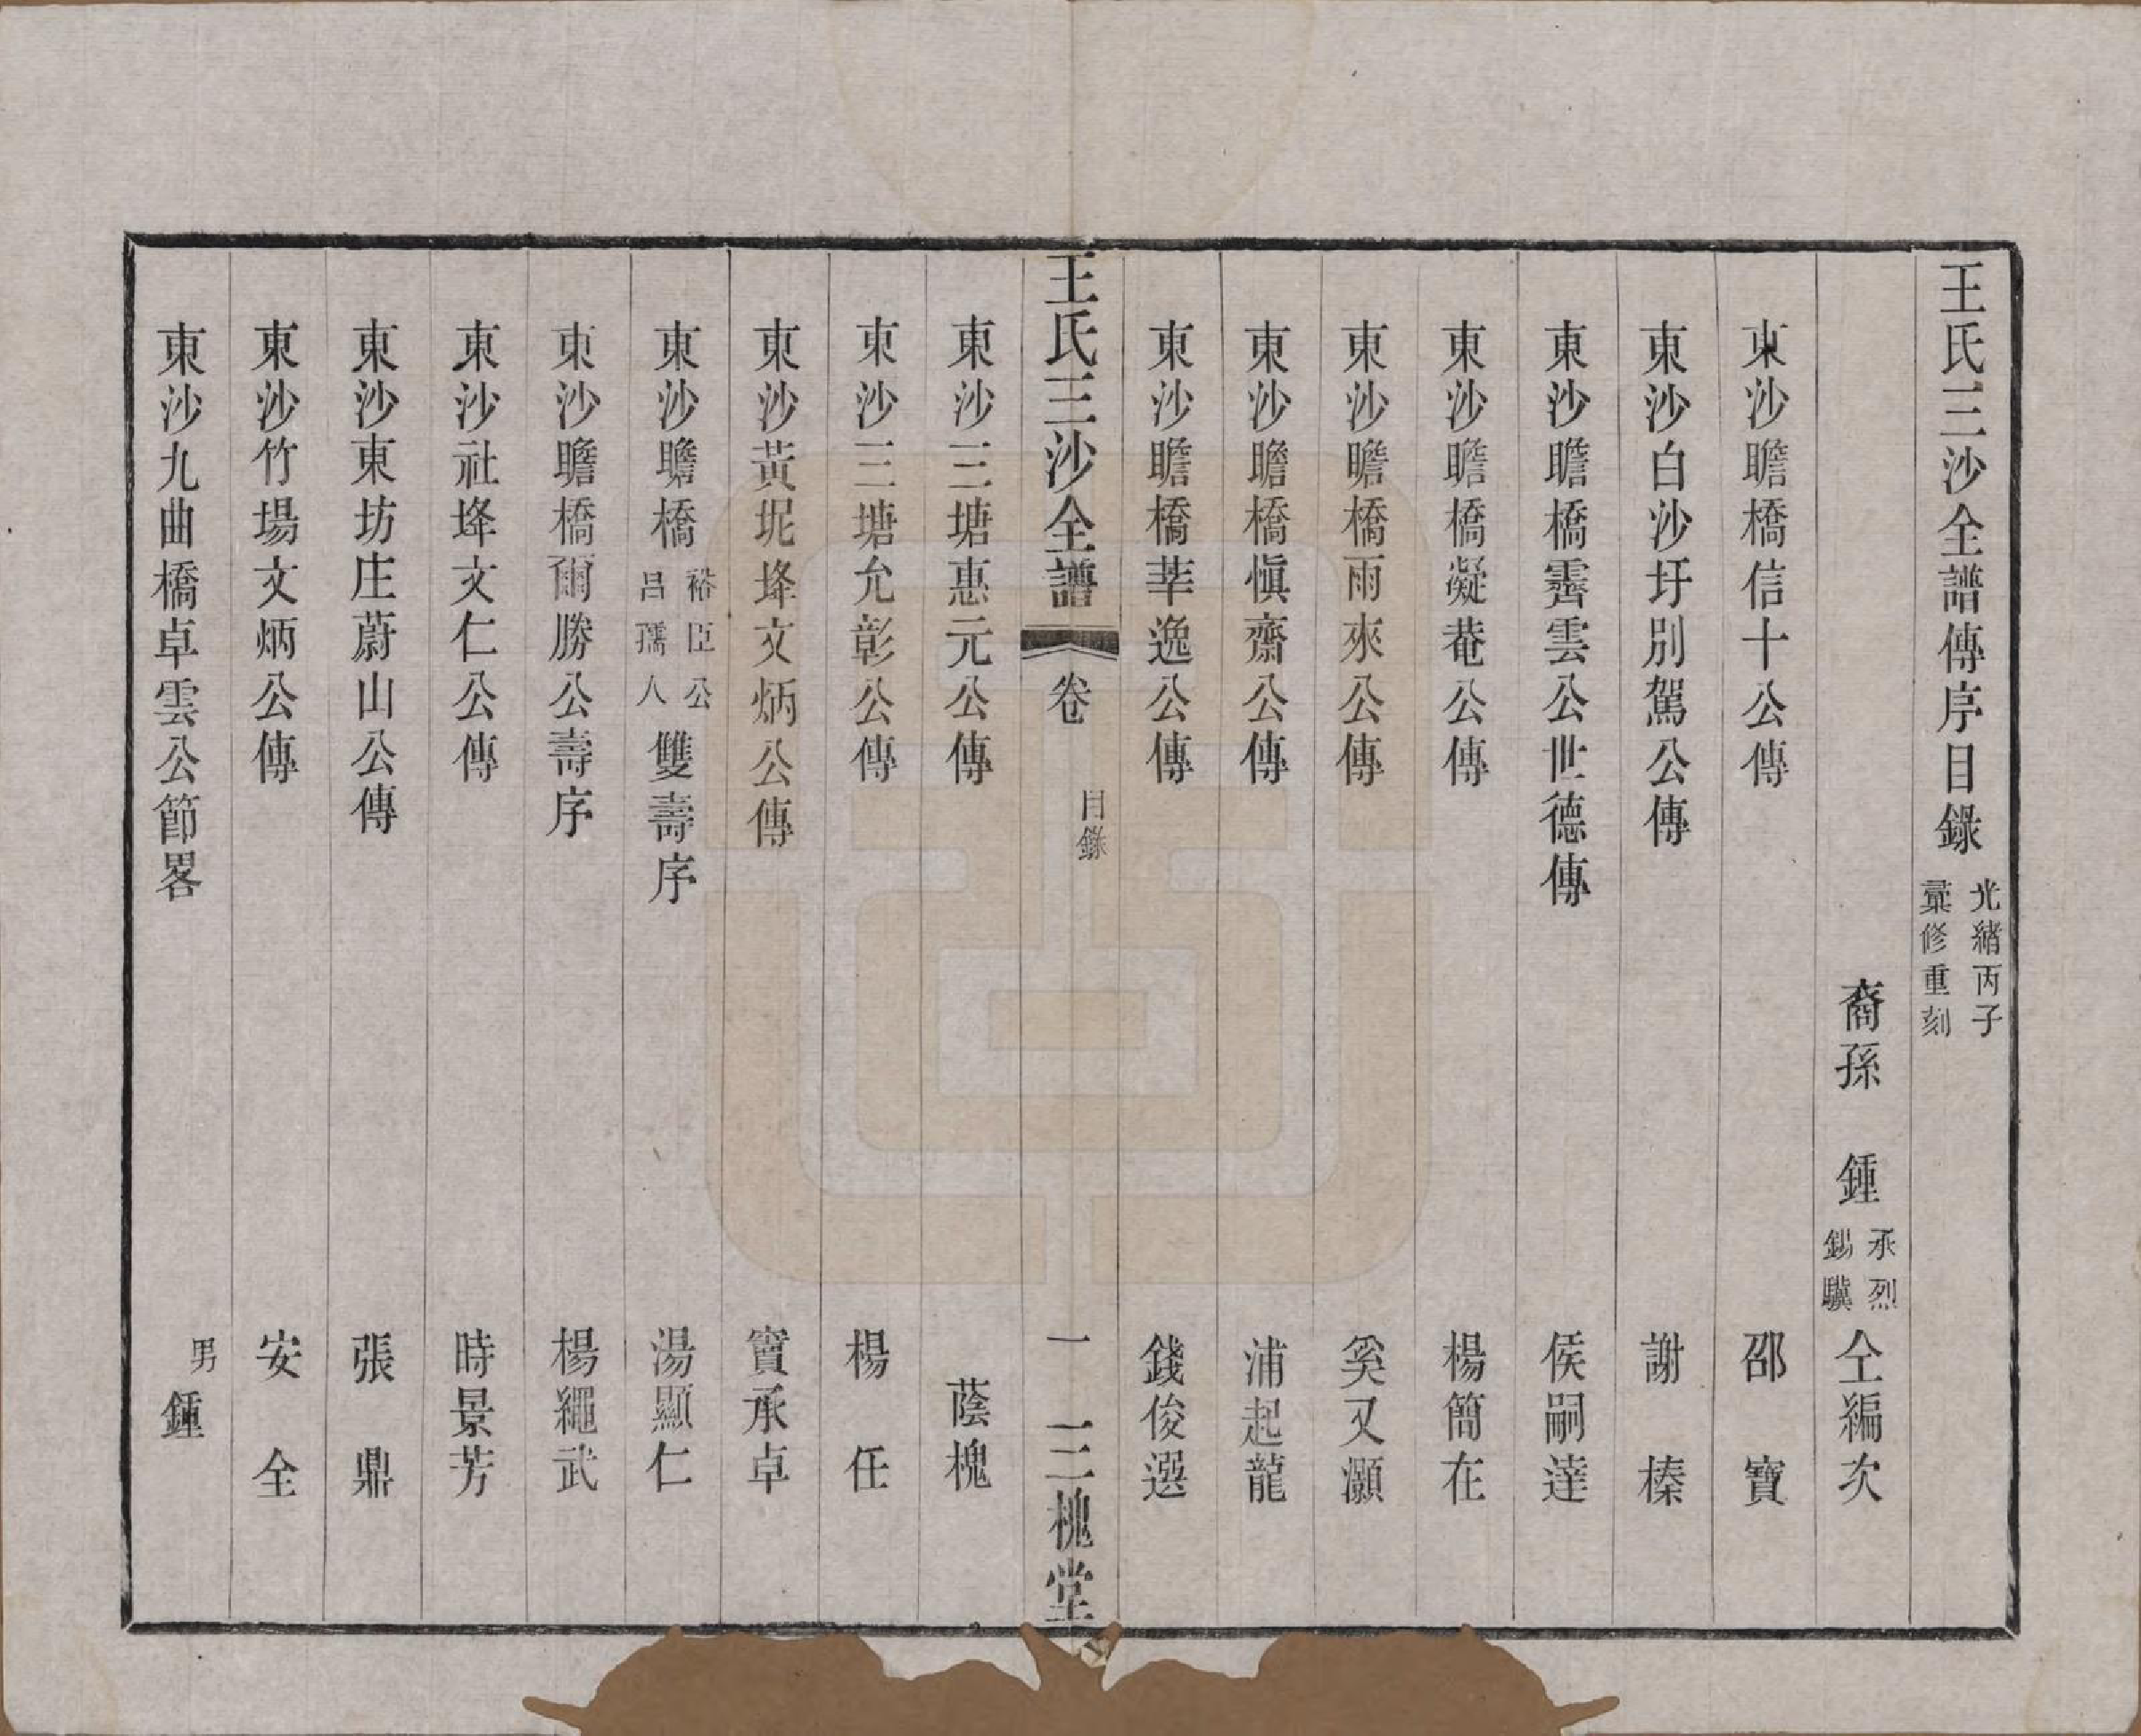 王氏三沙全譜傳序目錄 光緒丙子彚修重刻
裔孫 鍾 承烈 錫驥 仝編次
東沙瞻橋信十公傳 邵寶
東沙白沙圩別駕公傳 謝榛
東沙瞻橋霽雲公世德傳 侯嗣達
東沙瞻橋凝菴公傳 楊簡在
東沙瞻橋雨來公傳 奚又灝
東沙瞻橋愼齋公傳 浦起龍
東沙瞻橋莘逸公傳 錢俊選
王氏三沙全譜 卷 目錄 一 三槐堂
東沙三塘惠元公傳 蔭槐
東沙三塘允彰公傳 楊任
東沙黃坭垾文炳公傳 竇承卓
東沙瞻橋 裕臣公 呂孺人 雙壽序 湯顯仁
東沙瞻橋爾勝公壽序 楊繩武
東沙社垾文仁公傳 時景芳
東沙東坊庄蔚山公傳 張鼎
東沙竹場文炳公傳 安全
東沙九曲橋卓雲公節畧 男鍾